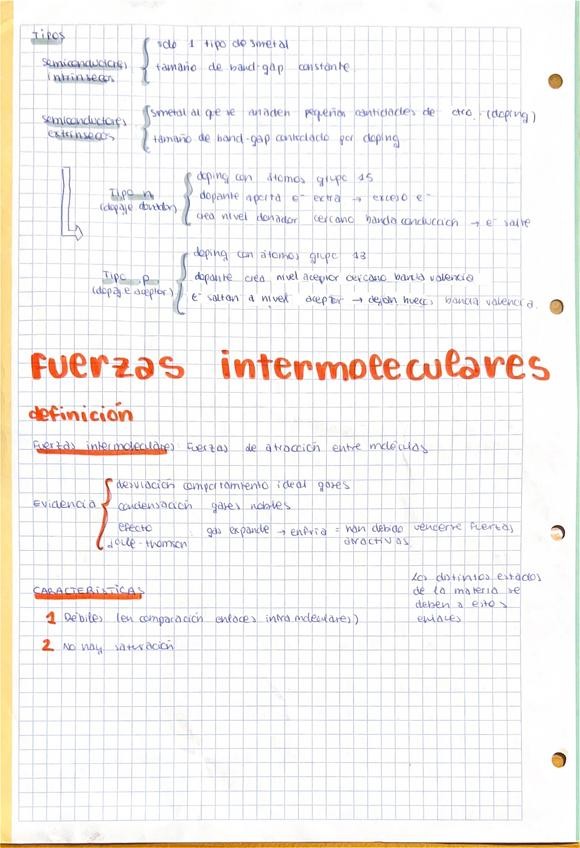 tipos
semiconductores intrínsecos
solo 1 tipo de smetal
tamaño de band-gap constante
semiconductores extrínsecos
smetal al que se añaden pequeñas cantidades de otro (doping)
tamaño de band-gap controlado por doping
Tipo n
(dopaje donador)
doping con átomos grupo 15
dopante aporta e⁻ extra → exceso e⁻
crea nivel donador cercano banda conducción → e⁻ salte
Tipo p
(dopaje aceptor)
doping con átomos grupo 13
dopante crea nivel aceptor cercano banda valencia
e⁻ saltan a nivel aceptor → dejan huecos banda valencia.
Fuerzas intermoleculares
definición
Fuerzas intermoleculares fuerzas de atracción entre moléculas
Evidencia
desviación comportamiento ideal gases
condensación gases nobles
efecto Joule-thomson
gas expande → enfría = han debido vencerse fuerzas
atractivas
Los distintos estados
de la materia se
deben a estos
enlaces
CARACTERÍSTICAS
1 Débiles (en comparación enlaces intramoleculares)
2 No hay saturación